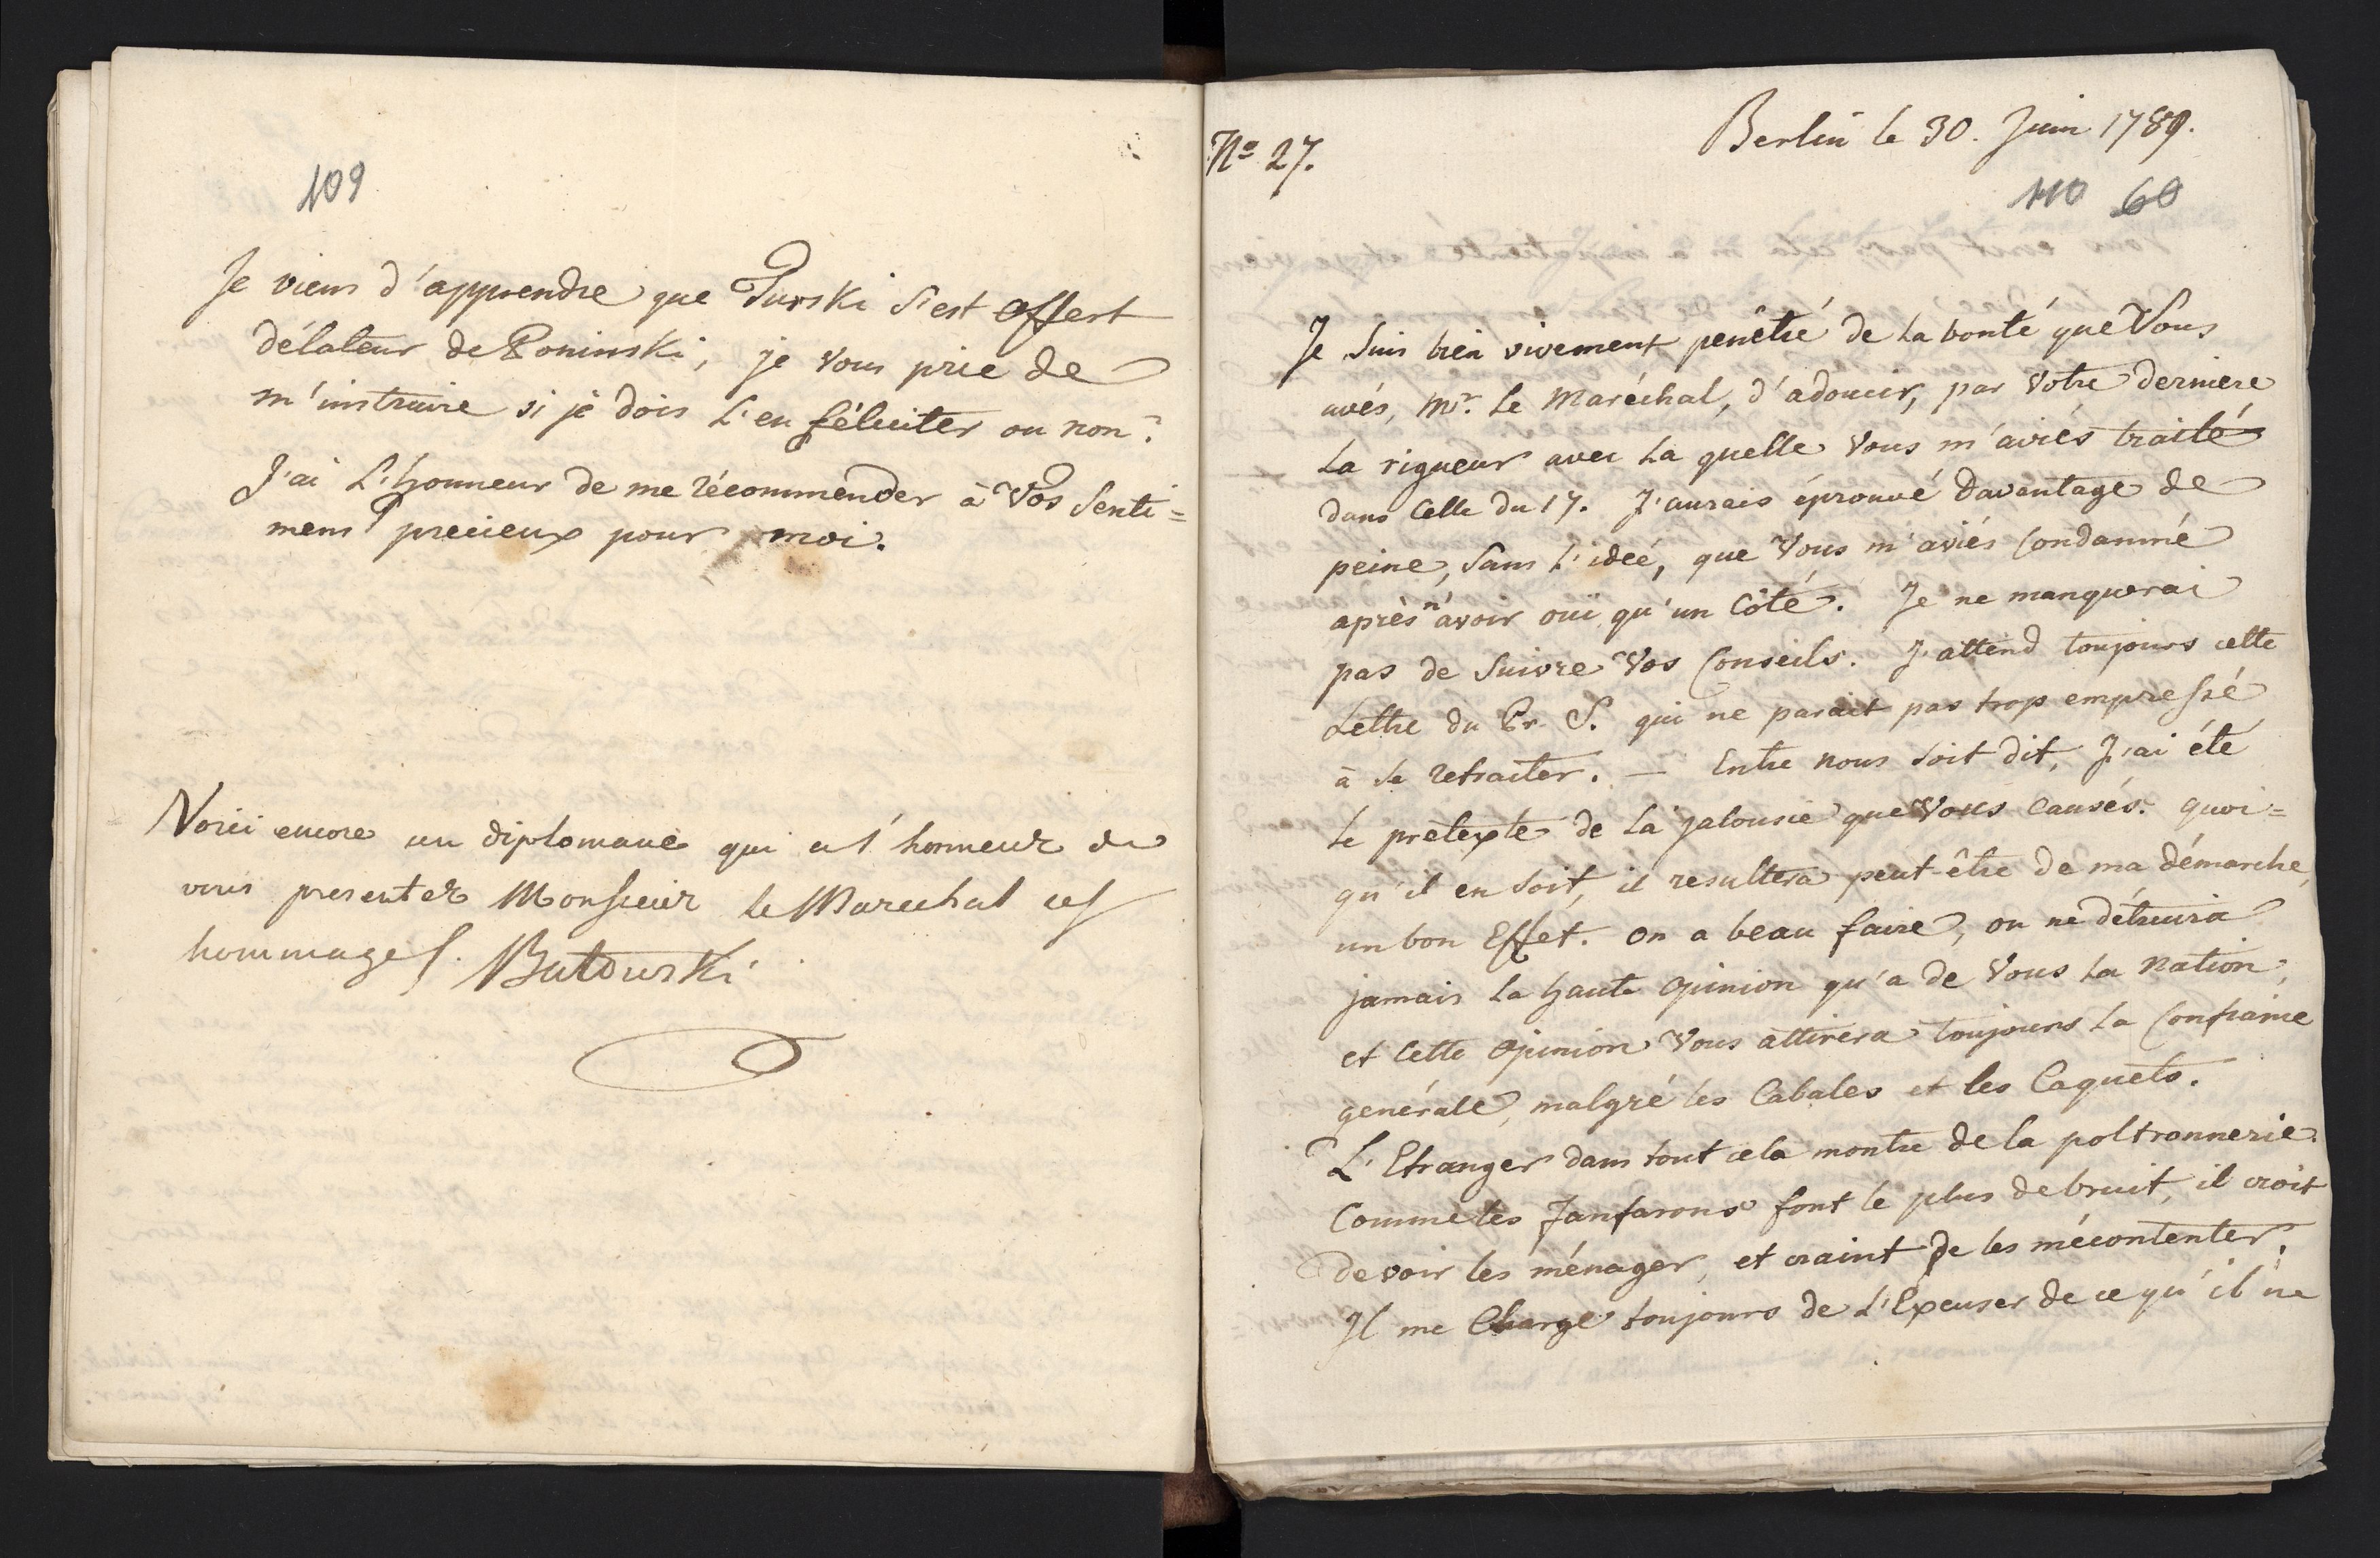 109
Je viens d'apprendre que Turski s'est offert
délateur de Poninski, je vous prie de
m'instruire si je dois l'en féliciter ou non?
J'ai l'honneur de me récommender à Vos senti=
mens precieux pour moi.
Voici encore un diplomane qui a l'honneur de
vous presenter Monsieur le Marechal ses
hommages. Batowski
No 27.
Berlin le 30. Juin 1789.
110 60
Je suis bien vivement penêtré de la bonté que Vous
avés, Mr. le Maréchal, d'adoucir, par Votre derniere
la rigueur avec la quelle Vous m'aviés traité
dans celle du 17. J'aurais éprouvé davantage de
peine, sans l'ideé, que Vous m'aviés condamné
après n'avoir oui qu'un Côté. Je ne manquerai
pas de suivre Vos Conseils. J'attend toujours cette
Lettre du Pr. S. qui ne parait pas trop empressé
à se retraiter. — Entre nous soit dit, J'ai été
le prétexte de la jalousie que Vous causés. quoi=
qu'il en soit, il resultera peut-être de ma démarche,
un bon Effet. On a beau faire, on ne détruira
jamais la haute Opinion qu'a de Vous la Nation,
et cette Opinion Vous attirera toujours la Confiance
generale, malgré les Cabales et les Caquets.
L'Etranger dans tout cela montre de la poltronnerie.
Comme les Fanfarons font le plus de bruit, il croit
devoir les ménager, et craint de les mécontenter.
Il me Charge toujours de l'Excuser de ce qu'il ne